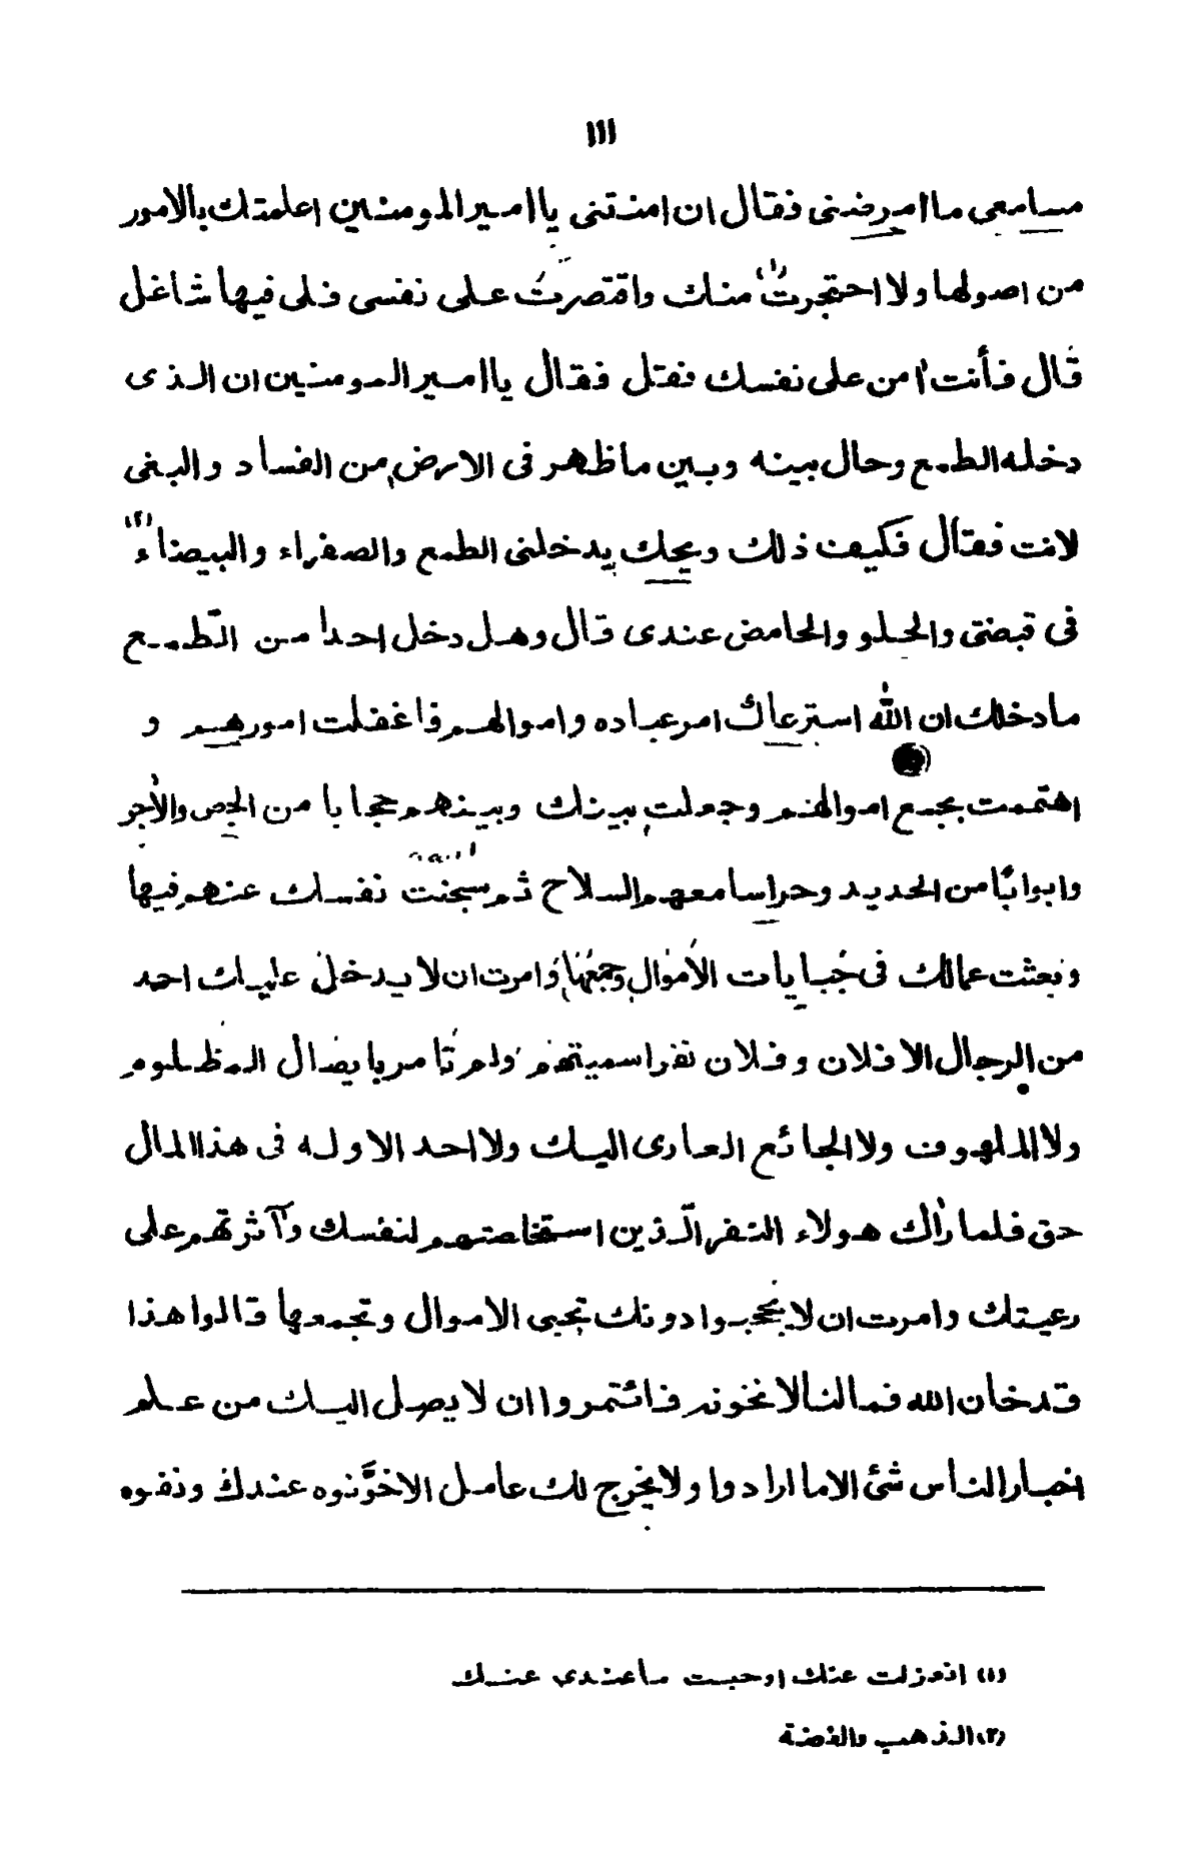 ١١١
مسامعى ما امرضنى فقال ان امنتنى يا امير المومنين اعلمتك بالامور
من اصولها ولا احتجرت⁽¹⁾ منك واقتصرت على نفسى فلى فيها شاغل
قال فأنت امن على نفسك فقل فقال يا امير المومنين ان الذى
دخله الطمع وحال بينه وبين ما ظهر فى الارض من الفساد والبغى
لانت فقال فكيف ذلك ويحك يدخلنى الطمع والصفراء والبيضاء⁽²⁾
فى قبضتى والحلو والحامض عندى قال وهل دخل احدا من الطمع
ما دخلك ان الله استرعاك امر عباده واموالهم فاغفلت امورهم و
اهتممت بجمع اموالهم وجعلت بينك وبينهم حجابا من الجص والأجر
وابوابًا من الحديد وحراسا معهم السلاح ثم سجنت نفسك عنهم فيها
وبعثت عمالك فى جبايات الأموال وجمعها وامرت ان لا يدخل عليك احد
من الرجال الا فلان وفلان نفرا سميتهم ولم تامر بايصال المظلوم
ولا الملهوف ولا الجائع العارى اليك ولا احد الا وله فى هذا المال
حق فلما رأك هولاء النفر الّذين استخلصتهم لنفسك وآثرتهم على
رعيتك وامرت ان لا يحجبوا دونك تجبى الاموال وتجمعها قالوا هذا
قد خان الله فما لنا لا نخونه فائتمروا ان لا يصل اليك من علم
اخبار الناس شئ الا ما ارادوا ولا يخرج لك عامل الا خوّنوه عندك ونفوه
(١) انعزلت عنك او حبست ما عندى عنك
(٢) الذهب والفضة